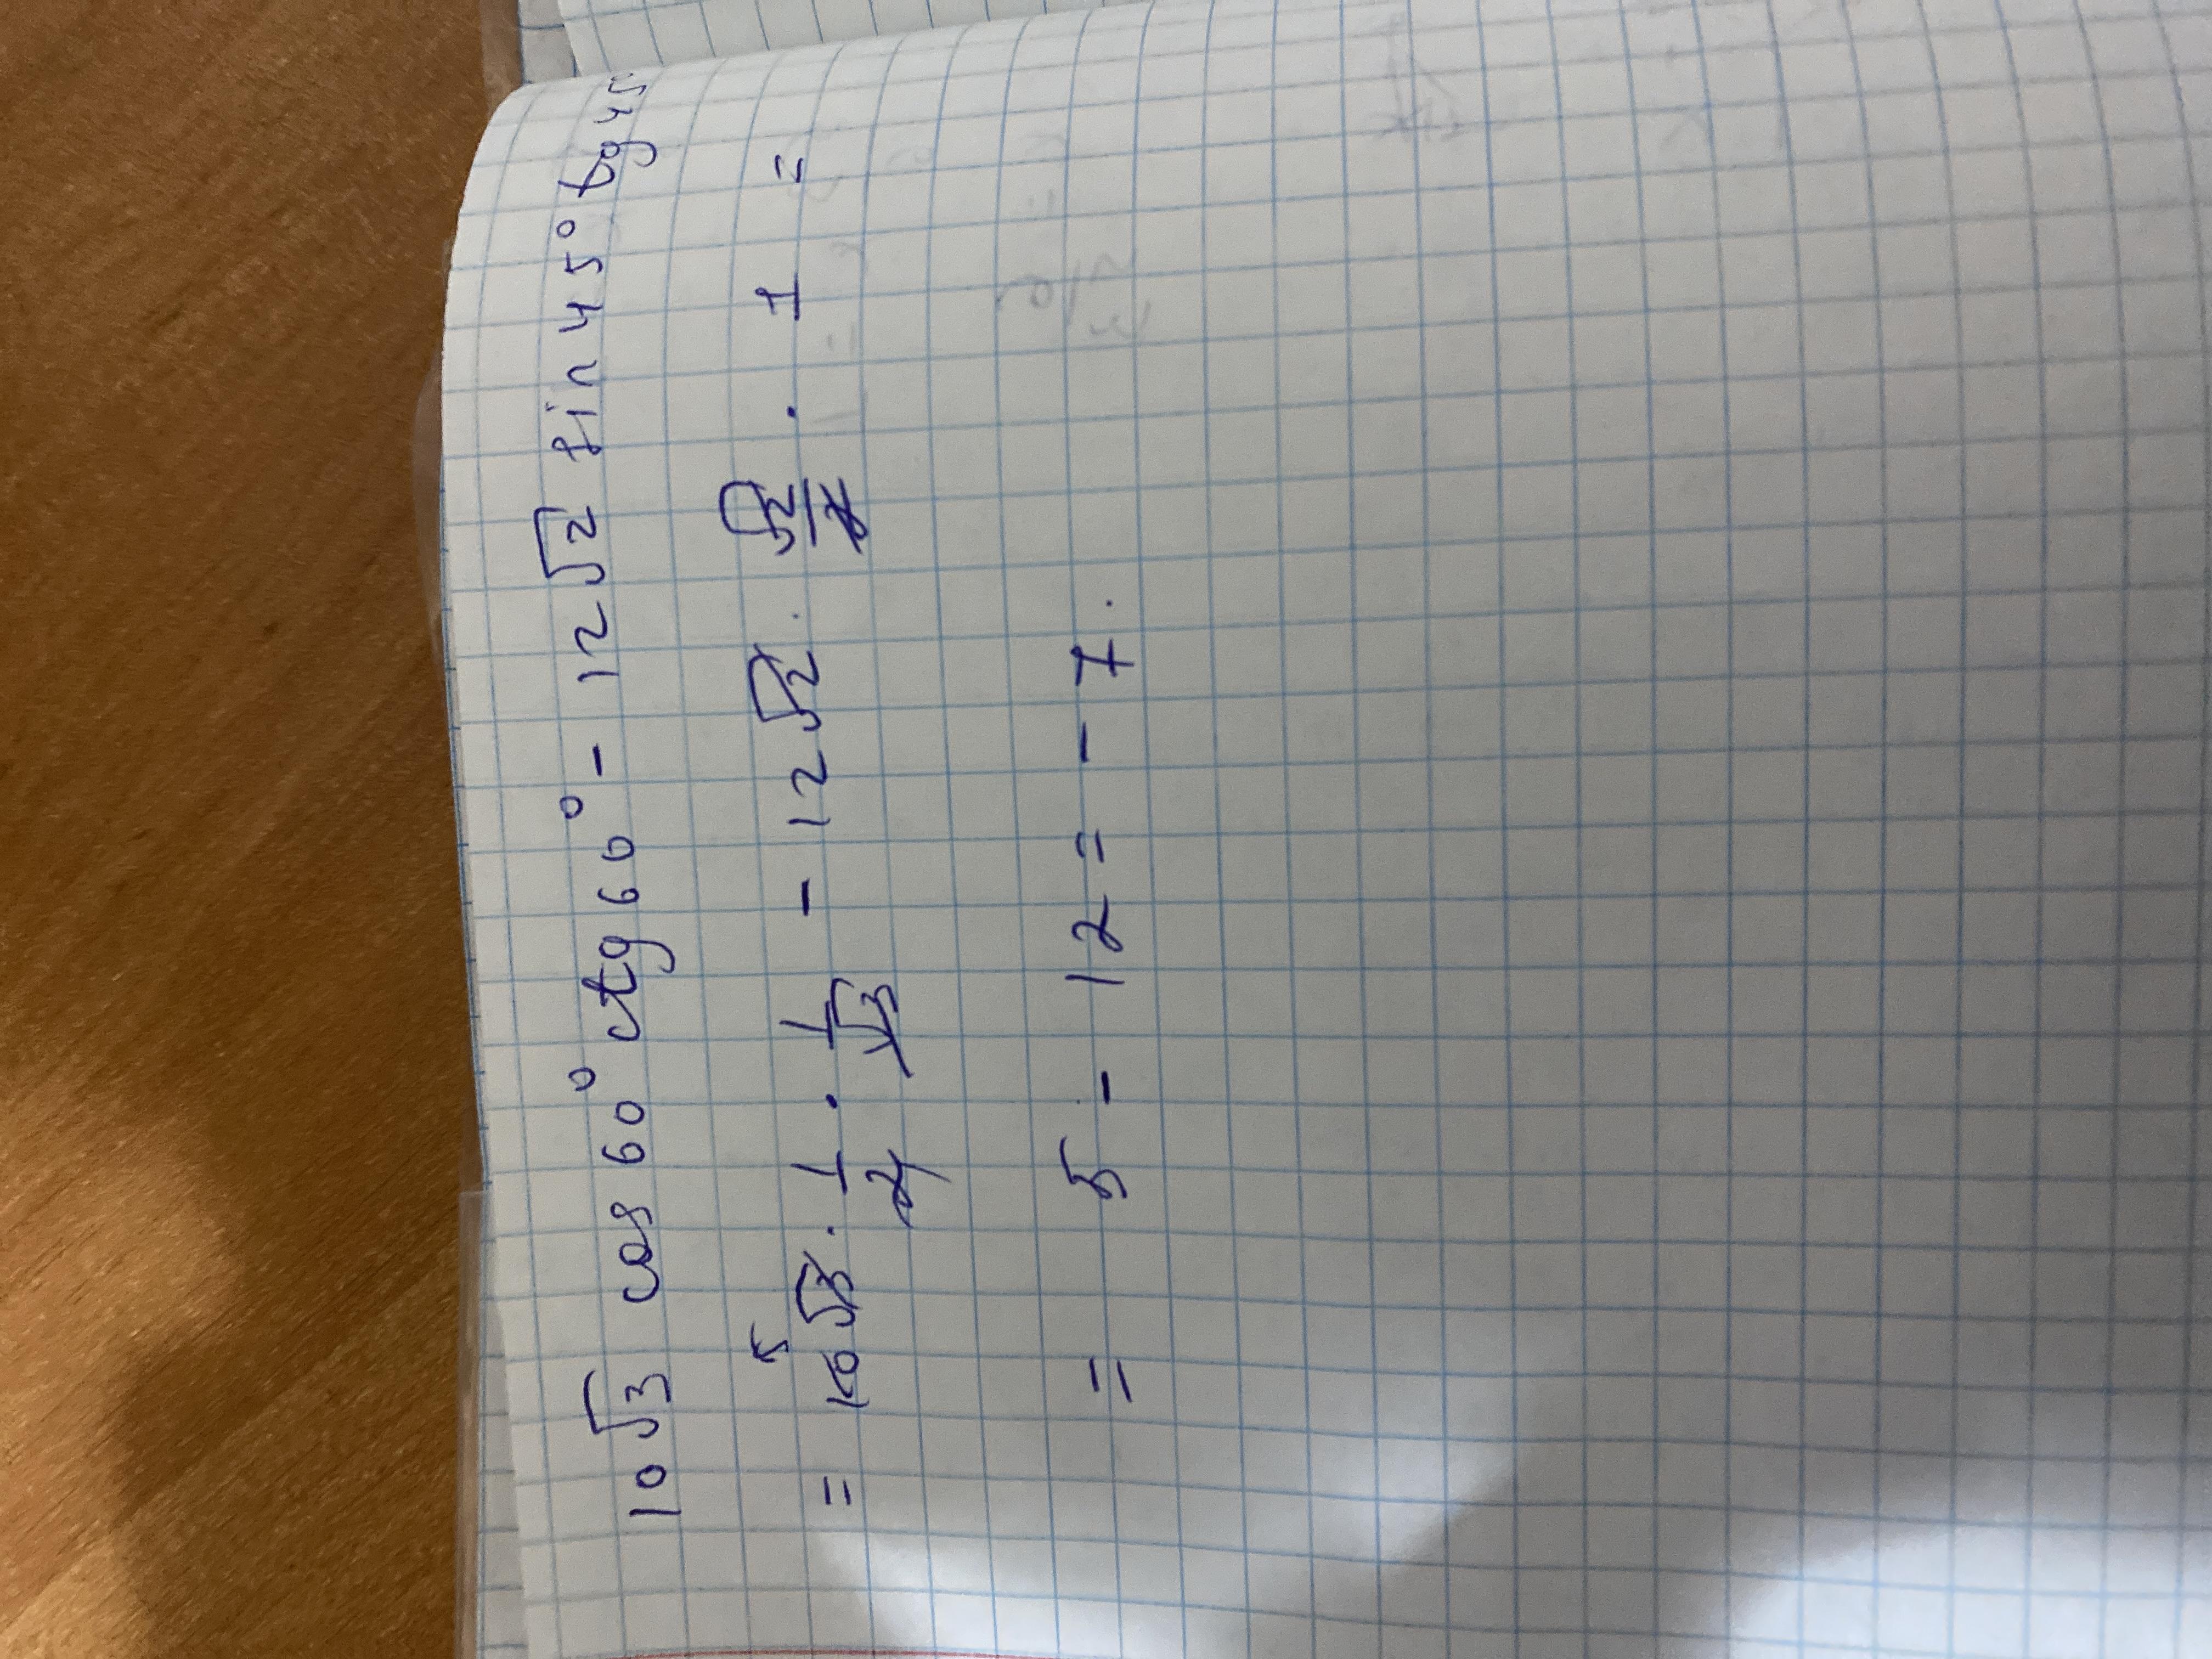 10√3 cos 60° ctg 60° - 12√2 sin 45° tg 45
= 10√3 · 1/2 · 1/√3 - 12√2 · √2/2 · 1 =
= 5 - 12 = - 7.